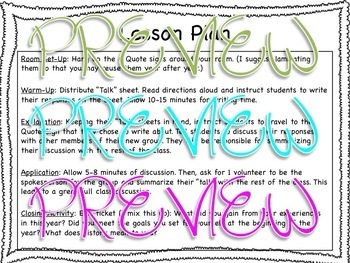 Lesson Plan
PREVIEW
Room Set-Up: Hang the Quote signs around your room. (I suggest laminating
them so that you may reuse them year after year.)
Warm-Up: Distribute "Talk" sheet. Read directions aloud and instruct students to write
their for the sheet. Allow 10-15 minutes for time.
PREVIEW
Keeping the sheets in mind, instruct students to travel to the
Quote Sign that they chose to write about. Students discuss their responses
with other members of the new group. They will be responsible for summarizing
their discussion with the rest of the class.
Application: Allow 5-8 minutes of discussion. Then, ask for 1 volunteer to be the
spokesperson for the group and summarize their "talk" with the rest of the class. This
lead to a great class discussion.
PREVIEW
Closing Activity: Exit ticket mix this up): What did you gain from your experiences
in this year? Did you meet the goals you set for yourself at the beginning of the
year? What does history mean to you?